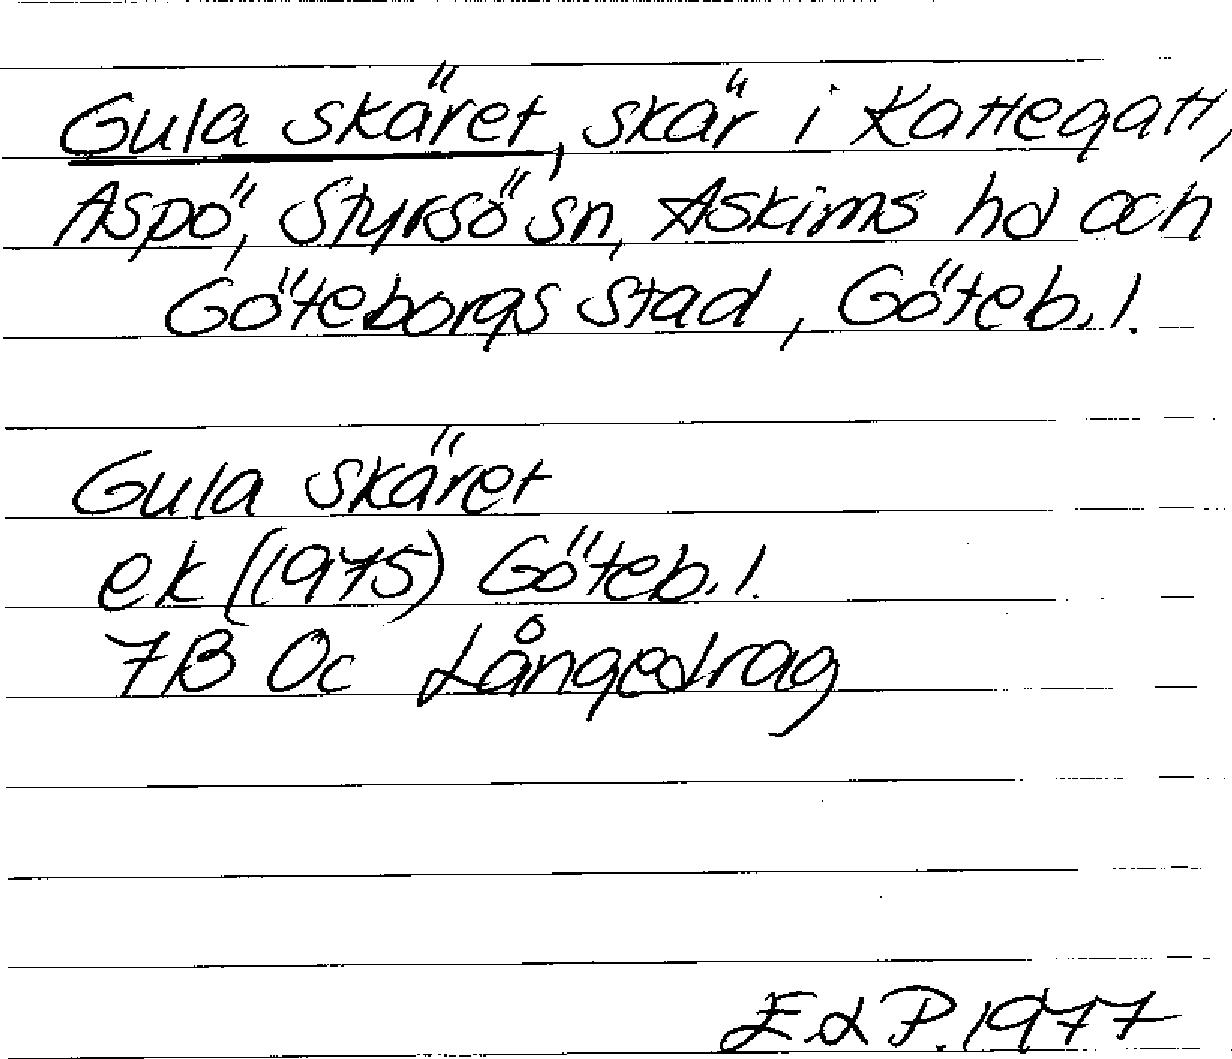 Gula skäret, skär i Kattegatt,
Aspö, Styrsö sn, Askims hd och
Göteborgs stad, Göteb. l.
Gula skäret
ek (1975) Göteb. l.
7B Oc Långedrag
E L P. 1977